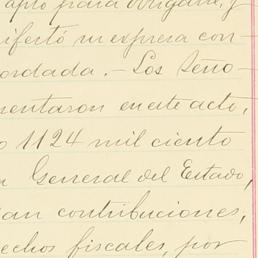 apto para obligarse, y
ifestó su expresa con-
ordada. - Los Seño-
mentaron en este acto,
o 1124 mil ciento
n General del Estado,
an contribuciones,
echos fiscales, por